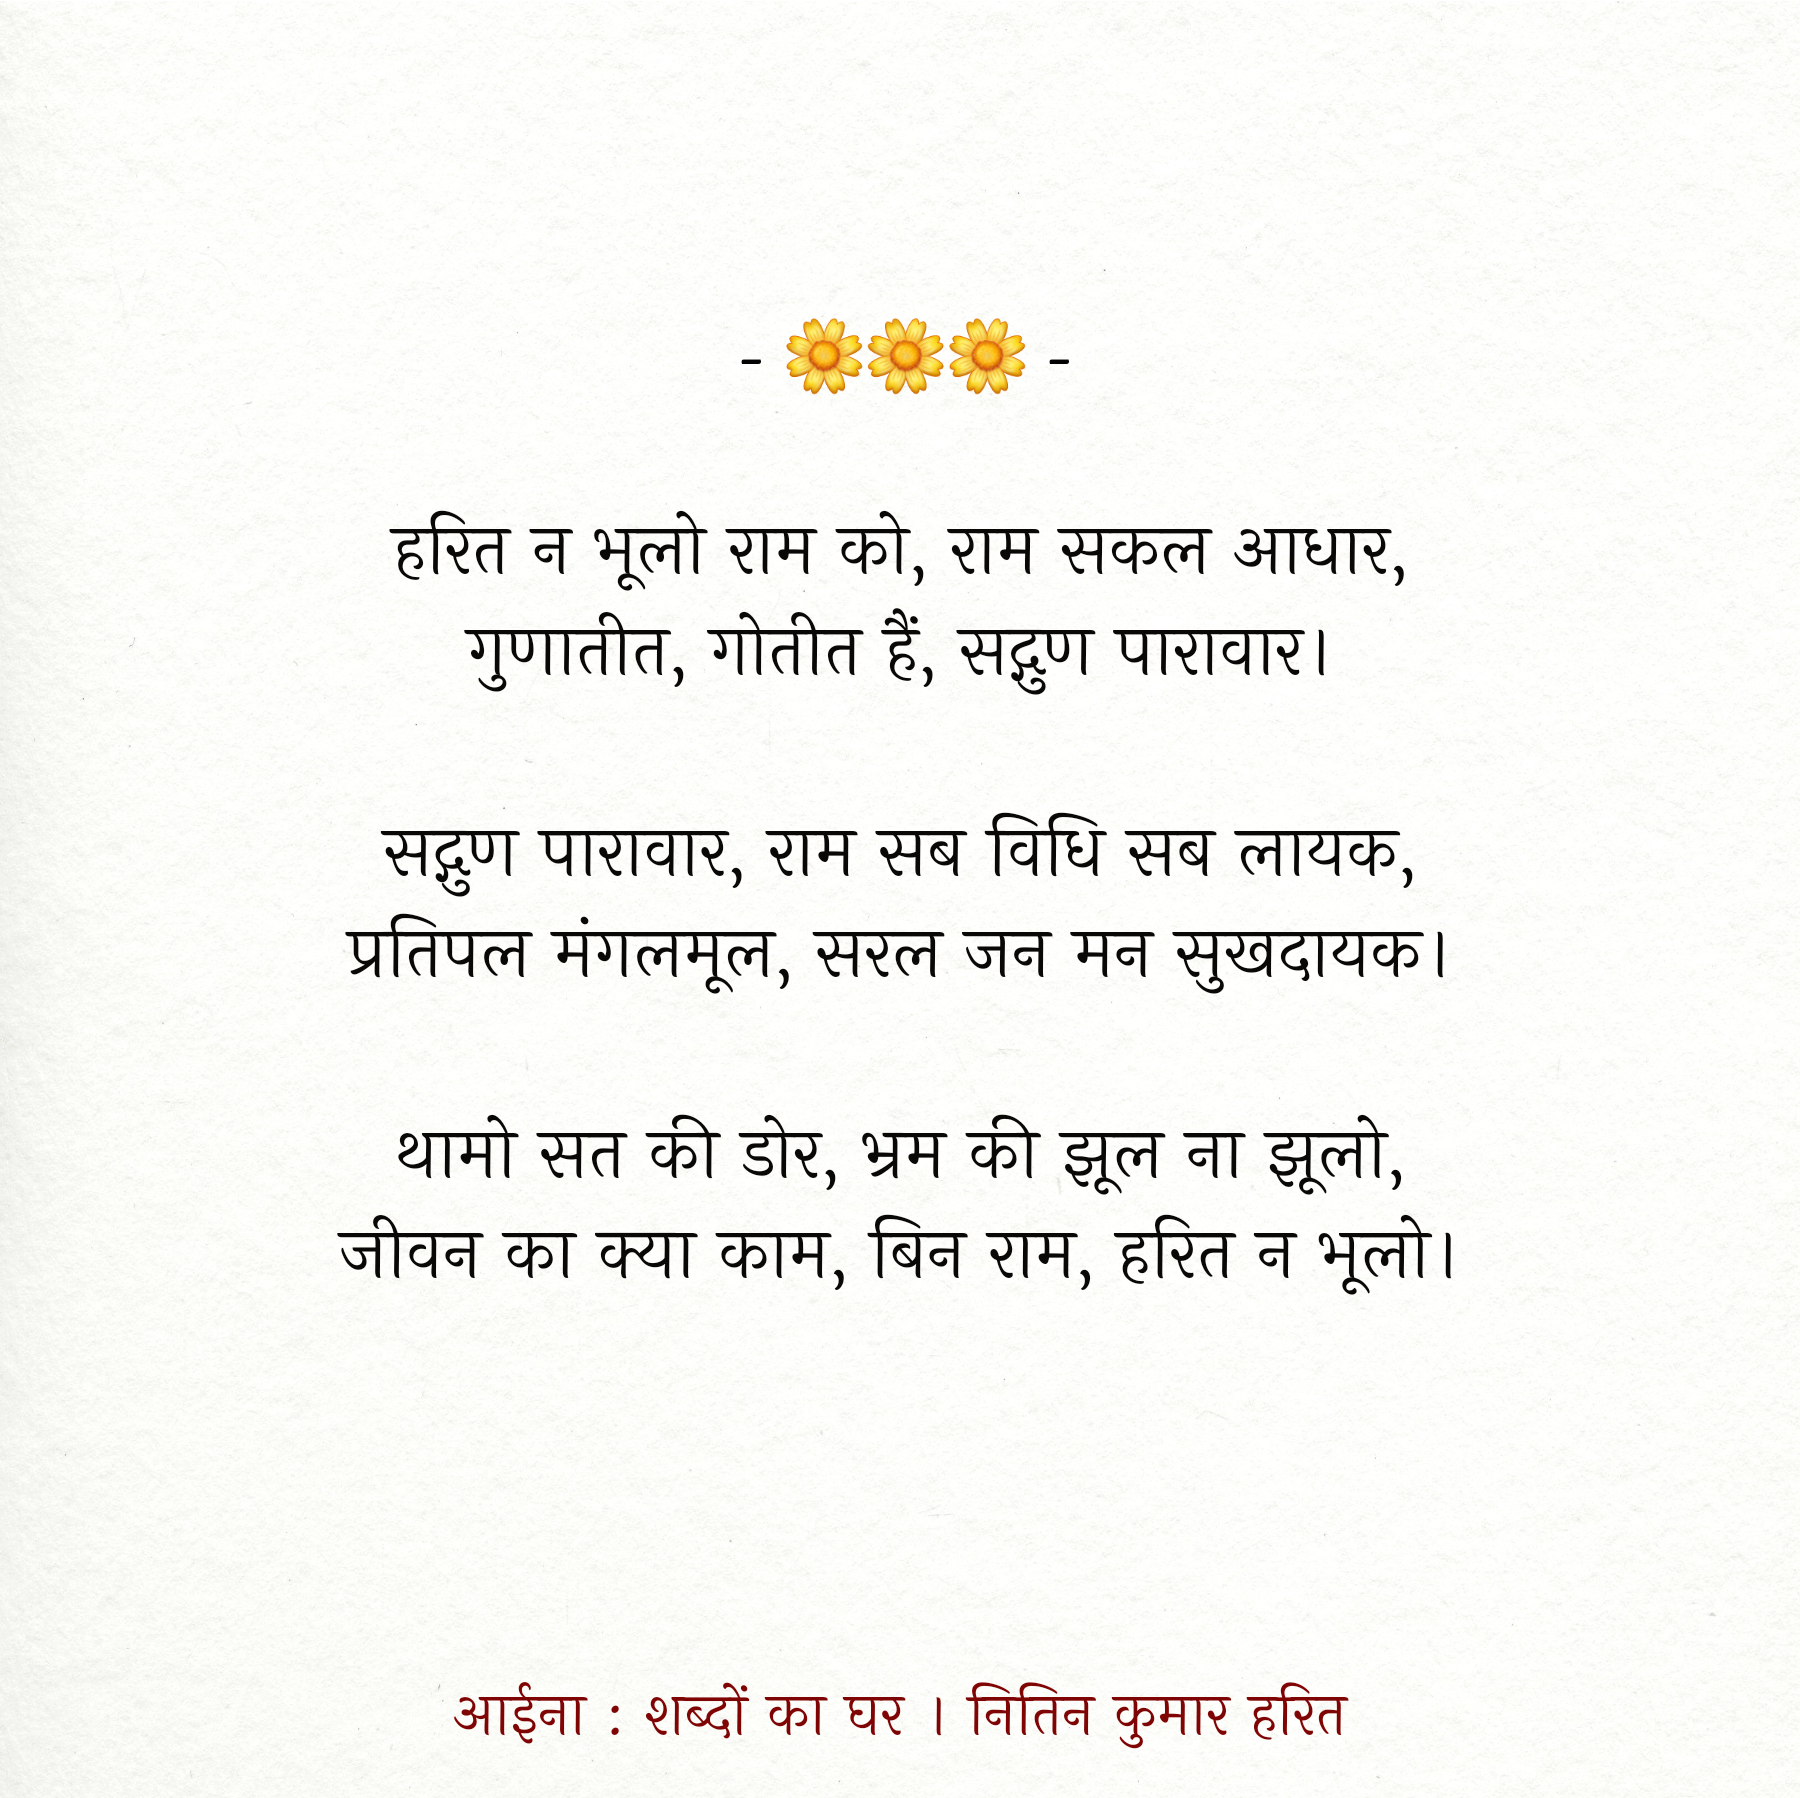 - 🌼🌼🌼 -
हरित न भूलो राम को, राम सकल आधार,
गुणातीत, गोतीत हैं, सद्गुण पारावार।
सद्गुण पारावार, राम सब विधि सब लायक,
प्रतिपल मंगलमूल, सरल जन मन सुखदायक।
थामो सत की डोर, भ्रम की झूल ना झूलो,
जीवन का क्या काम, बिन राम, हरित न भूलो।
आईना : शब्दों का घर । नितिन कुमार हरित